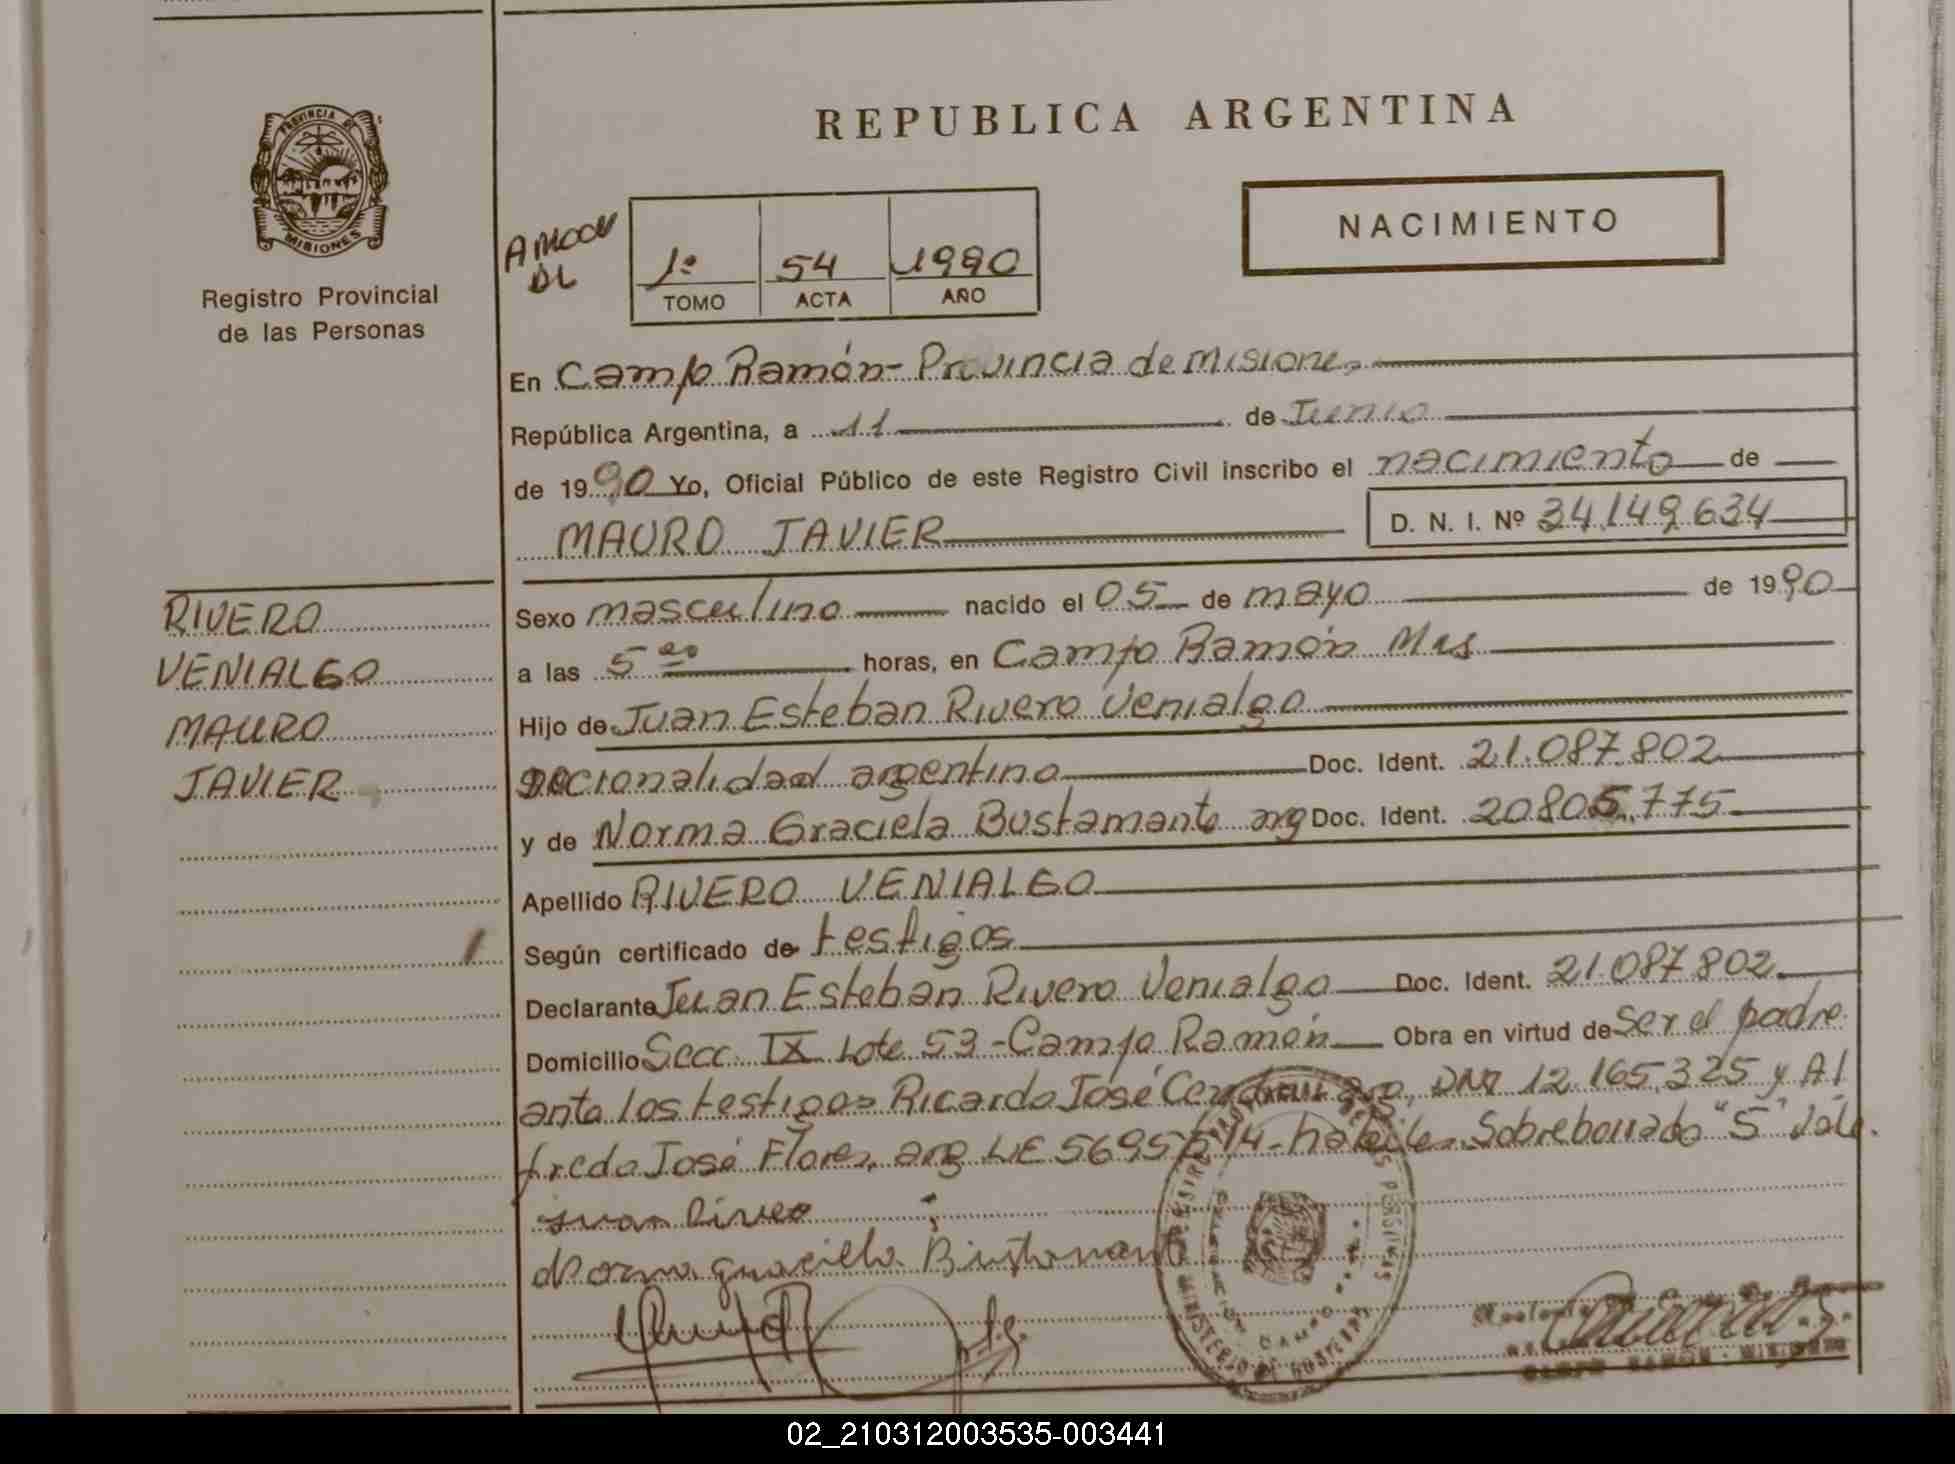 PROVINCIA DE
MISIONES
Registro Provincial
de las Personas
REPUBLICA ARGENTINA
NACIMIENTO
1º 54 1990
TOMO ACTA AÑO
En Campo Ramón - Provincia de Misiones
República Argentina, a 11 de Junio
de 1990 Yo, Oficial Público de este Registro Civil inscribo el nacimiento de
MAURO JAVIER D. N. I. Nº 34.149.634
RIVERO
VENIALGO
MAURO
JAVIER
Sexo masculino nacido el 05 de mayo de 1990
a las 5 horas, en Campo Ramón Mns
Hijo de Juan Esteban Rivero Venialgo
nacionalidad argentino Doc. Ident. 21.087.802
y de Norma Graciela Bustamante arg Doc. Ident. 20805.775
Apellido RIVERO VENIALGO
Según certificado de testigos
Declarante Juan Esteban Rivero Venialgo Doc. Ident. 21.087.802
Domicilio Secc. IX Lote 53 - Campo Ramón Obra en virtud de ser el padre
ante los testigos Ricardo José arg, DNI 12.165.325 y Al
fredo José Flores, arg LE 5695 - hábiles. Sobreborrado "5" Vale.
Juan Rivero
Norma graciella Bustamante
CAMPO RAMON - MISIONES
02_210312003535-003441